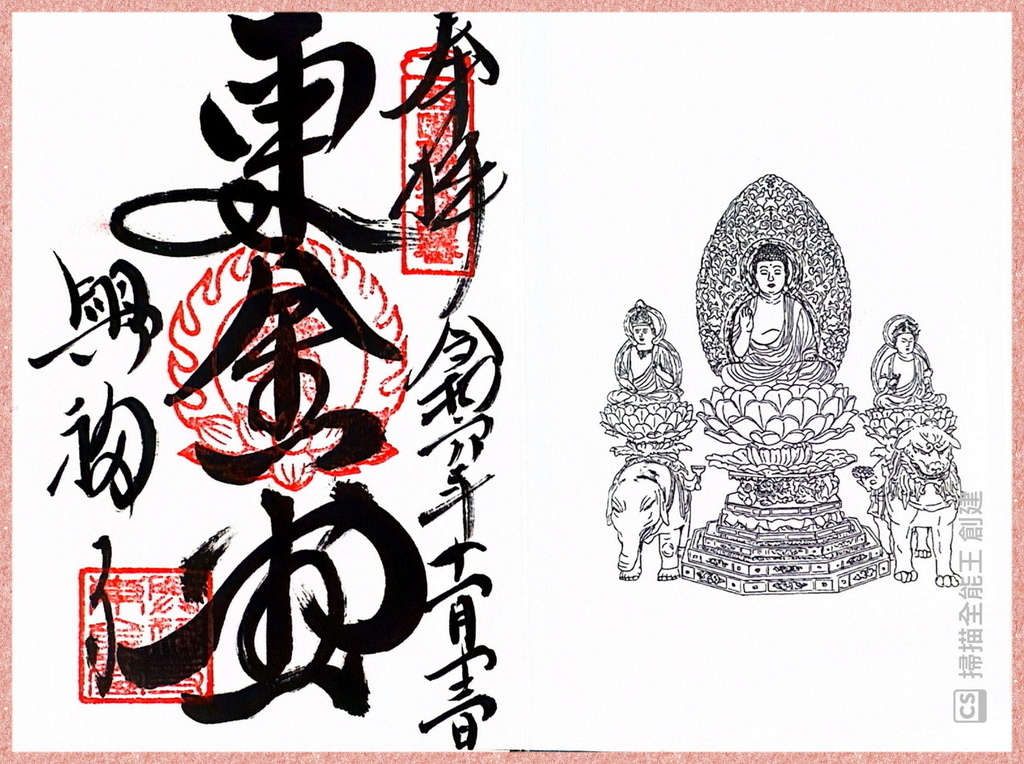 奉拝
令和六年十一月十三日
東金堂
興福寺
CS 掃描全能王 創建